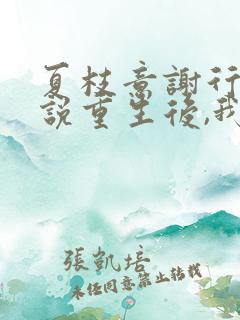 夏枝意謝行
說重生後,我
張凱培
未任同意禁止転載